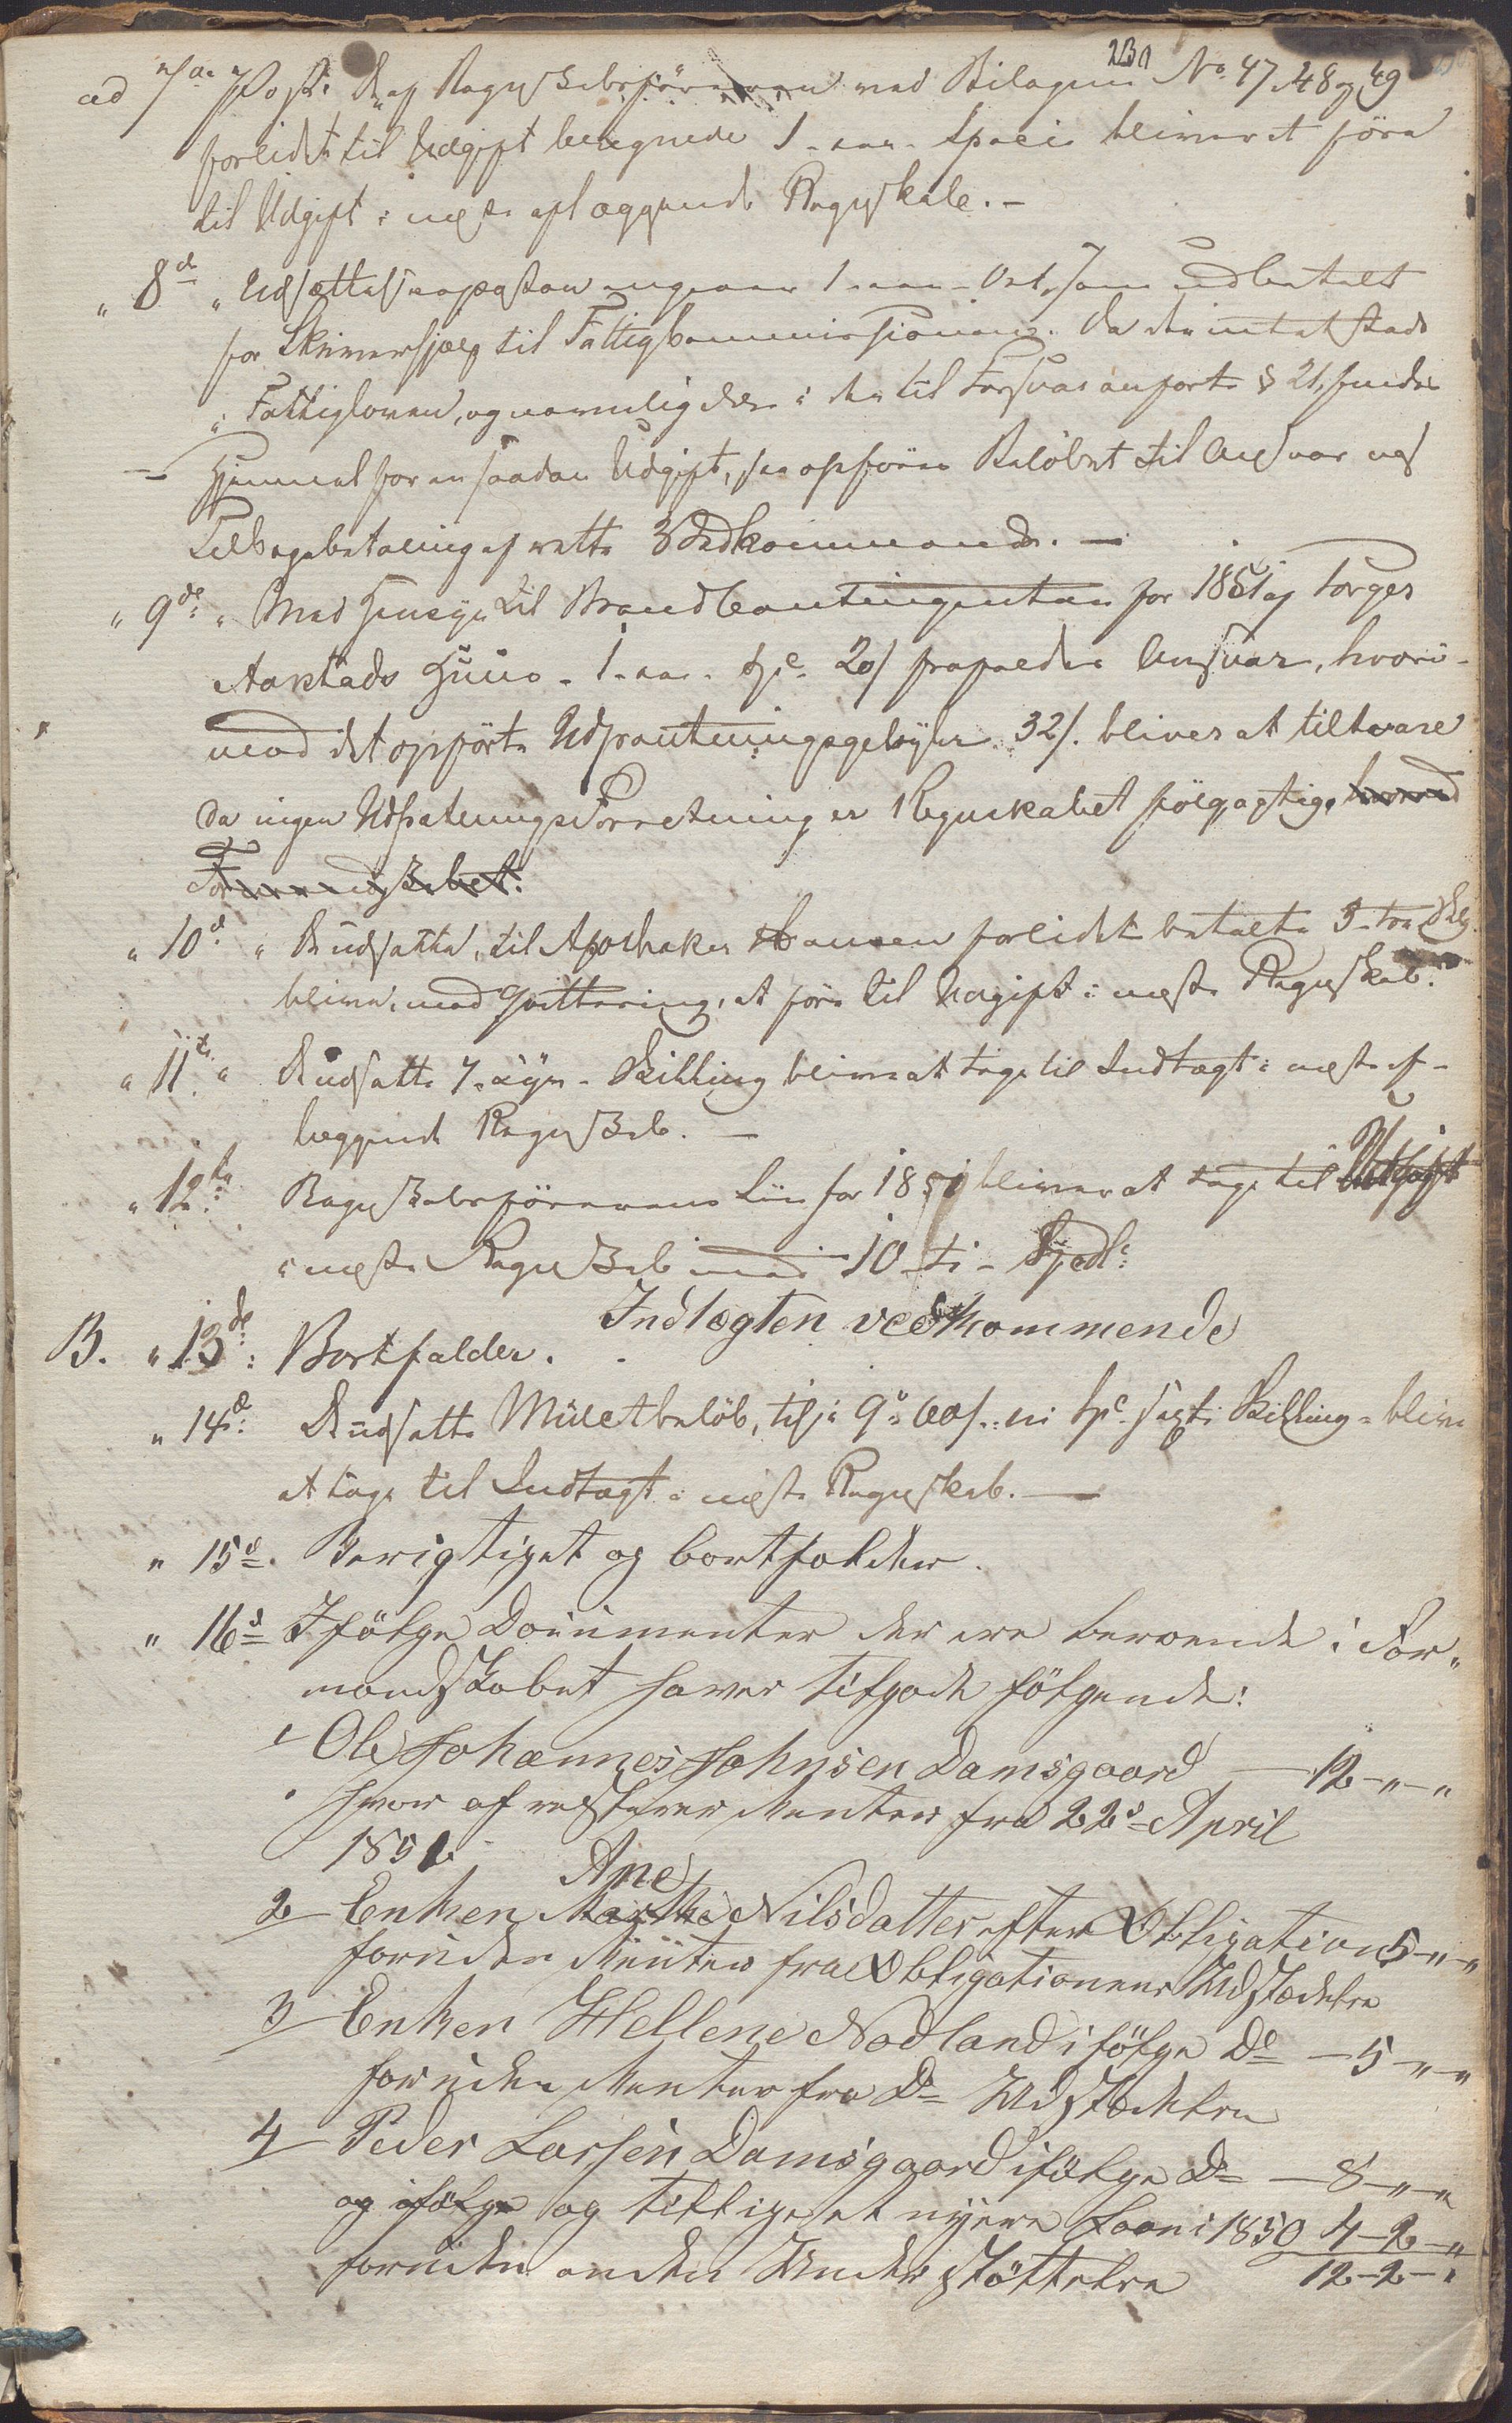 230
ad 7de Post. De af Regnskabsføreren ved Bilagene No 47, 48 og 49
forlidet til Udgift beregnede 1 - een - Specie bliver at føre
til Udgift i næste aflæggende Regnskab. -
" 8de " Udsættelsesposten angaaer 1 - een - Ort, som udbetalt
for Skriverhjælp til Fattigkommissionen. Da der intet Steds
i Fattigloven, og navnlig ikke i den til Forsvar anførte § 21, findes
Hjemmel for en saadan Udgift, saa opføres Beløbet til Ansvar ved
Tilbagebetaling af rette Vedkommende. -
" 9de " Med Hensyn til Brandkontingenten for 1851 af Torger
Aarstads Huus - 1 - een - Spe 20 s frafalder Ansvar, hvori-
mod det opførte Udpantningsgebyhr 32 s. bliver at tilsvare
da ingen Udpantningsforretning er Regnskabet følgagtig,
Formandskabet.
" 10de " De udsatte, til Apotheker Hansen forlidet betalte 3 - tre Skilg.
bliver, mod Qvittering, at føre til Udgift i næste Regnskab.
" 11te " De udsatte 7 - syv - Skilling bliver at tage til Indtægt i næste af-
læggende Regnskab. -
" 12te Regnskabsførerens Løn for 1851 bliver at tage til Udgift
i næste Regnskab med 10 - ti - Spdl:
Indtægten vedkommende
B. " 13de: Bortfalder.
" 14de: De udsatte Mulctbeløb, tils. 9 " 60 s. ni Spe sexti Skilling - bliver
at tage til Indtægt i næste Regnskab. -
" 15de. Berigtiget og bortfalder.
" 16de Ifølge Documenter der ere beroende i For"
mandskabet haver tilgode følgende:
1 Ole Johannes Johnsen Damsgaard - 12 - " - "
hvor af rest erer Renter fra 22de April
1851
Ane
2 Enken Marthe Nilsdatter efter Obligation 5 - " - "
foruden Renter fra Obligationens Udstædelse
3 Enken Hellene Nodland ifølge Do - 5 - " - "
foruden Renter fra Do Udstædelse
4 Peder Larsen Damsgaard ifølge Do - 8 - " - "
og ifølge og tillige et nyere Laan i 1850 4 - 2 - "
foruden anden Understøttelse 12 - 2 - "